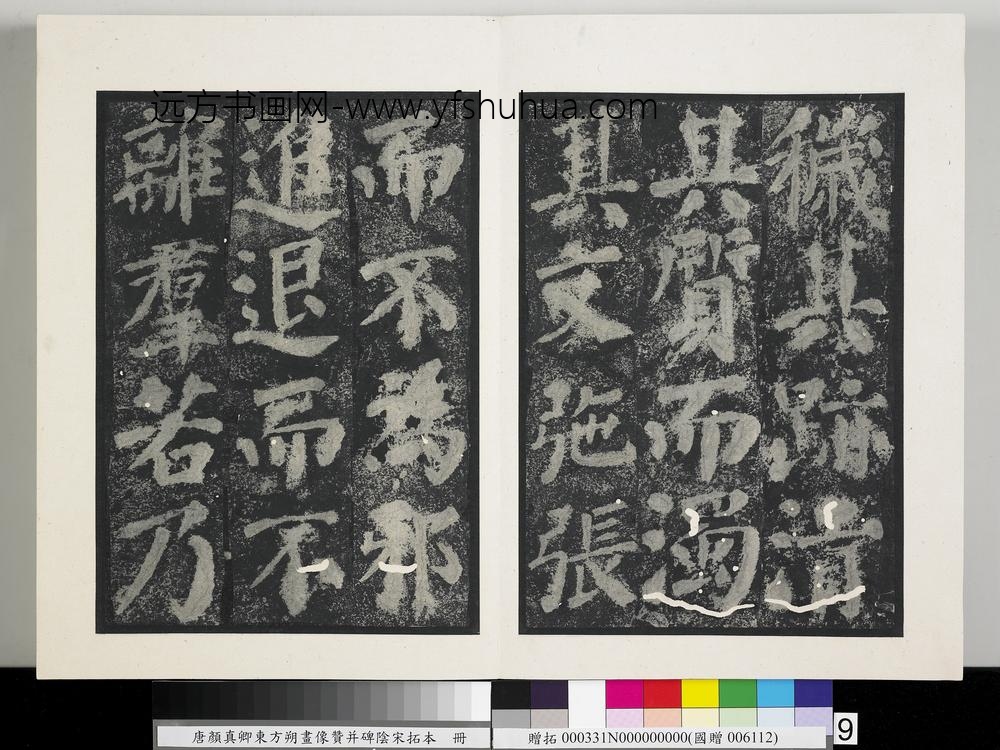 远方书画网-www.yfshuhua.com
穢其跡清
其質而濁
其文弛張
而不為邪
進退而不
離羣若乃
唐顏真卿東方朔畫像贊并碑陰宋拓本 冊
贈拓 000331N000000000(國贈 006112)
9